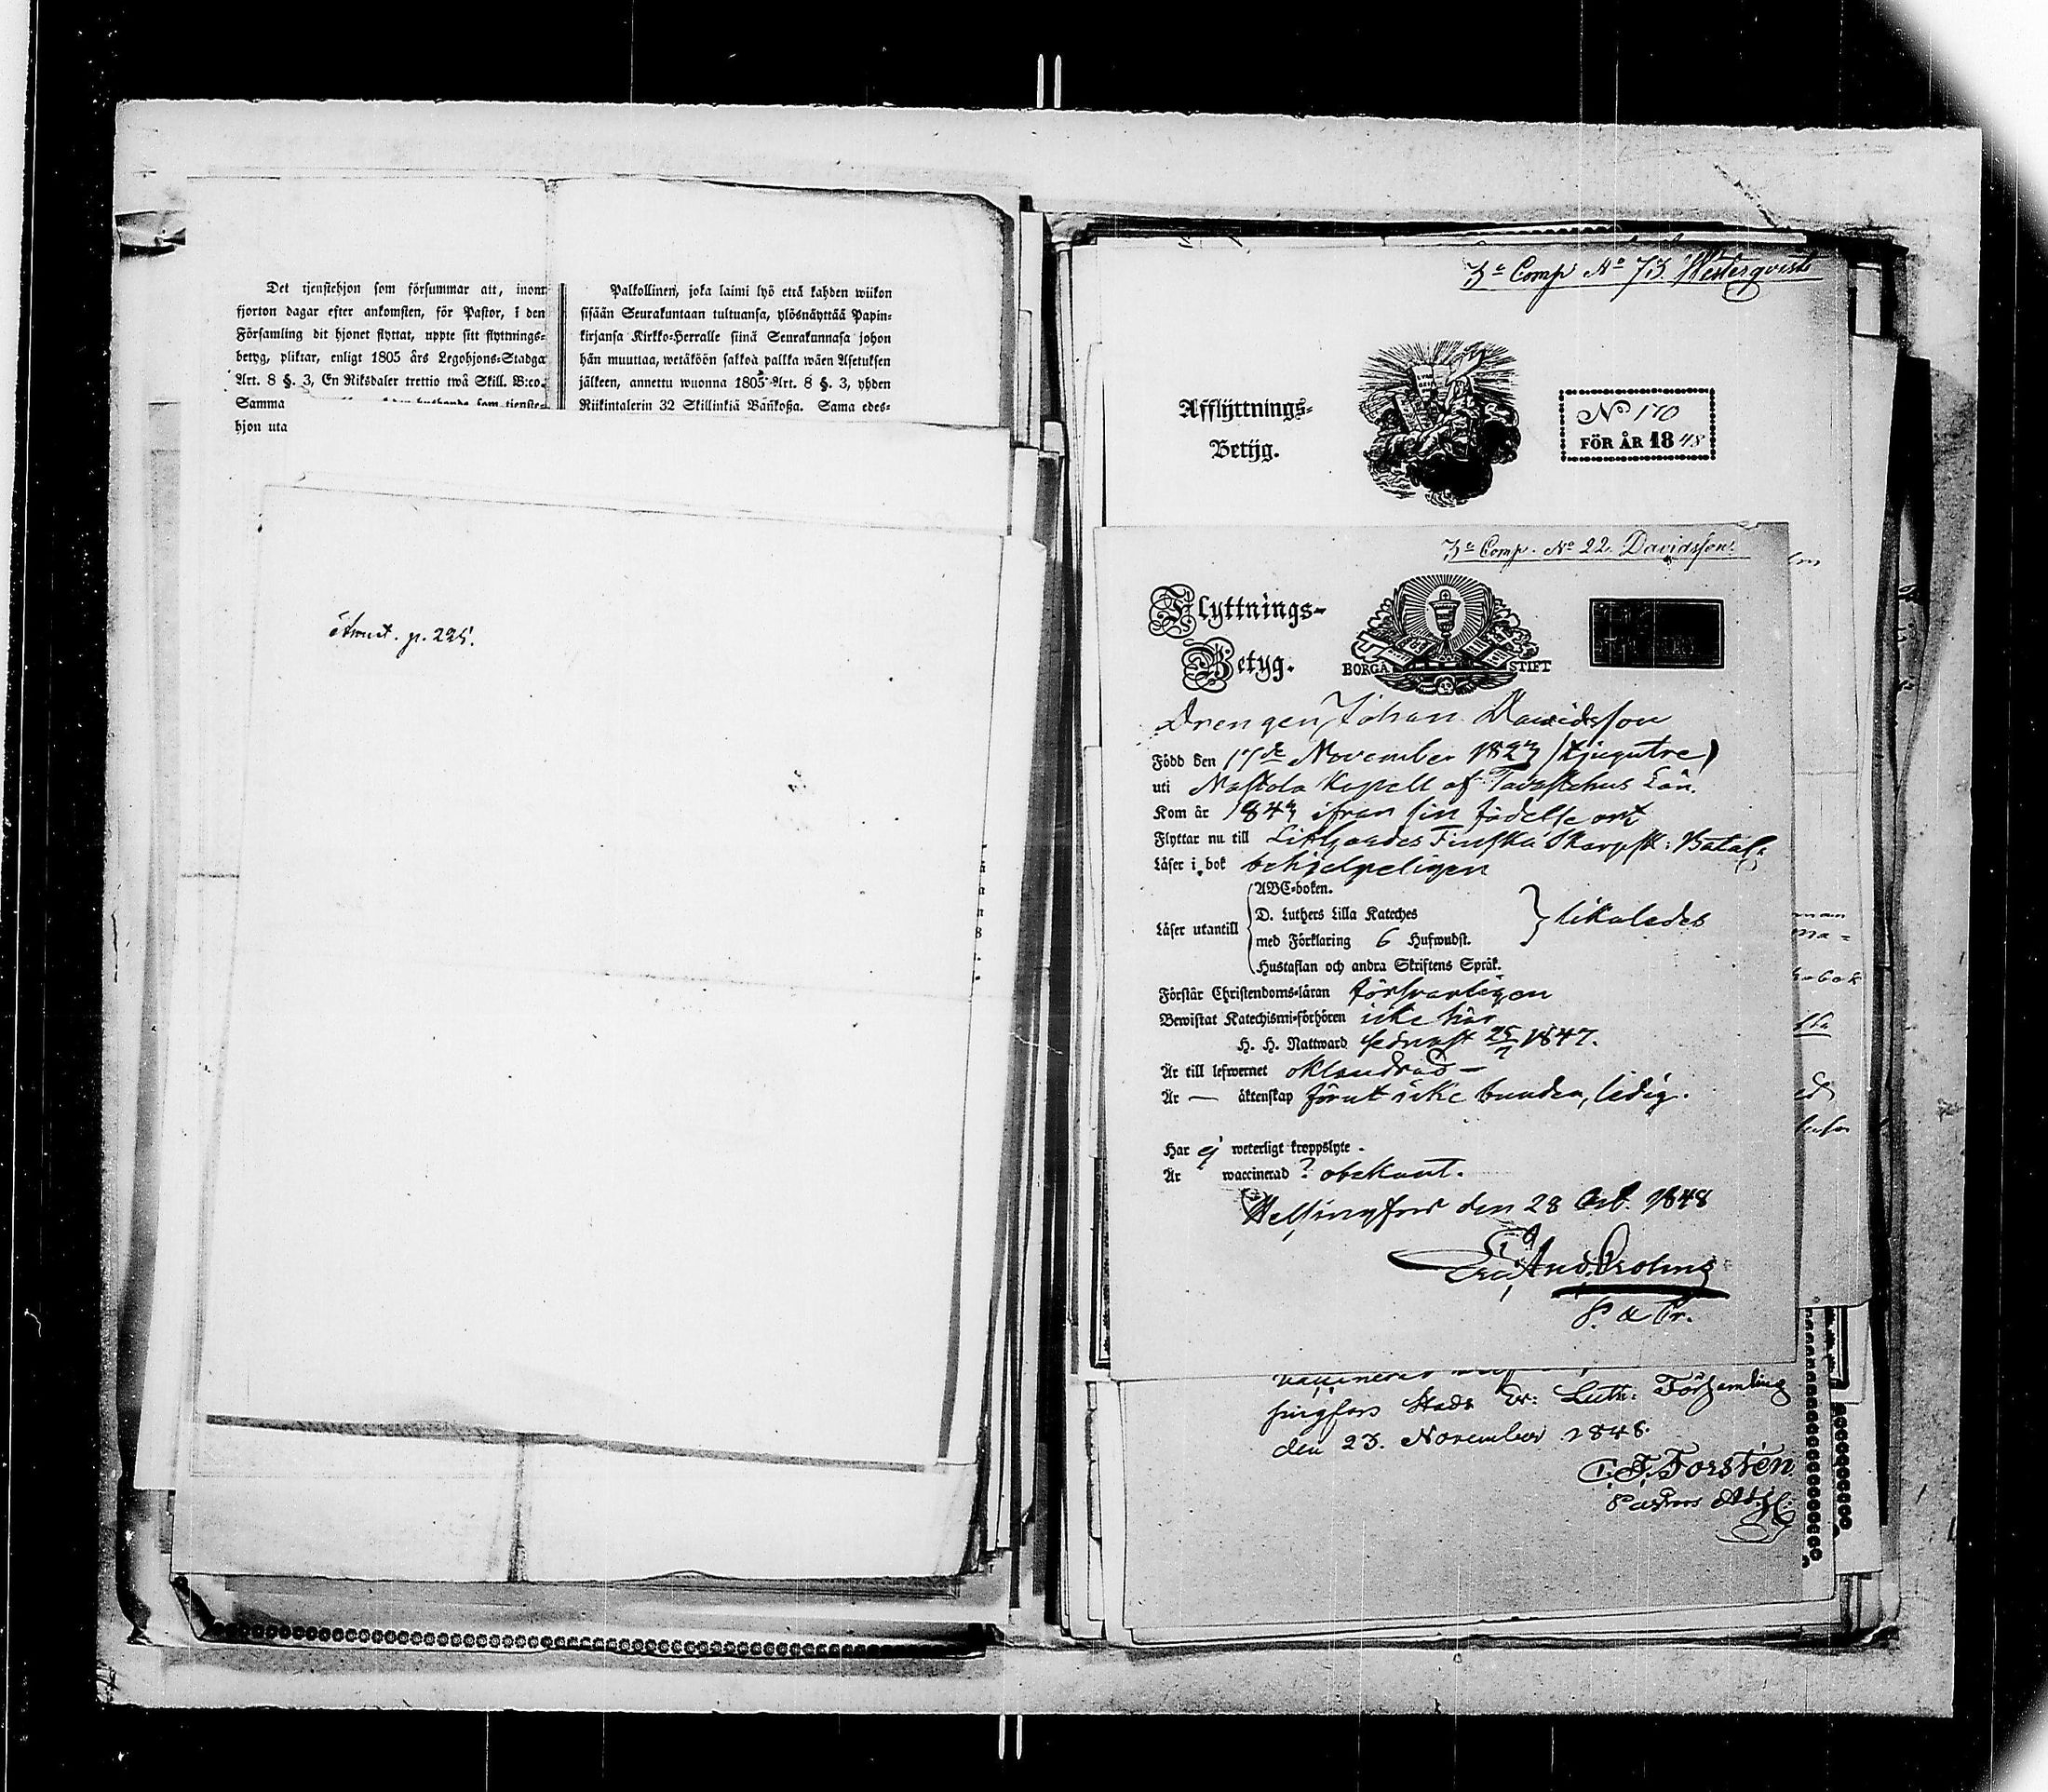 Det tjenstehjon som försummar att, inom
fjorton dagar efter ankomsten, för Pastor, i den
Församling dit hjonet flyttat, uppte sitt flyttnings-
betyg, pliktar, enligt 1805 års Legohjons-Stadga
Art. 8 §. 3, En Riksdaler trettio twå Skill. B:co.
Samma
hjon uta
Palkollinen, joka laimi lyö että kahden wiikon
sisään Seurakuntaan tultuansa, ylösnäyttää Papin-
kirjansa Kirkko-Herralle siinä Seurakunnasa johon
hän muuttaa, wetäköön sakkoa palkka wäen Asetuksen
jälkeen, annettu wuonna 1805 Art. 8 §. 3, yhden
Riikintalerin 32 Skillinkiä Bankoßa. Sama edes-
p. 225.
3e Comp No 73. Westerqvist
Afflyttnings-
Betyg.
No 170
FÖR ÅR 1848
3e Comp. No 22. Davidsson.
Flyttnings-
Betyg.
BORGÅ STIFT
Drengen Johan Davidsson
Född den 17de November 1823 (tjugutre)
uti Nastola Kapell af Tavastehus Län.
Kom år 1843 ifrån sin födelse ort
Flyttar nu till Lif Gardes Finska Skarpsk: Batal:
Läser i bok behjelpeligen
Läser utantill
ABC-boken.
D. Luthers Lilla Kateches
med Förklaring 6 Hufwudst.
Hustaflan och andra Skriftens Språk.
likaledes
Förstår Christendoms-läran försvarligen
Bewistat Katechismi-förhören icke här
H. H. Nattward sednast 25/7 1847.
Är till lefwernet oklandrad —
Är — äktenskap förut icke bunden, ledig.
Har ej weterligt kroppslyte.
Är waccinerad? obekant.
Helsingfors den 28 Oct. 1848
P. a Tr.
singfors Stads Ev: Luth: Församling
den 23. November 1848.
T. F. Forstén
Pastors Adj.